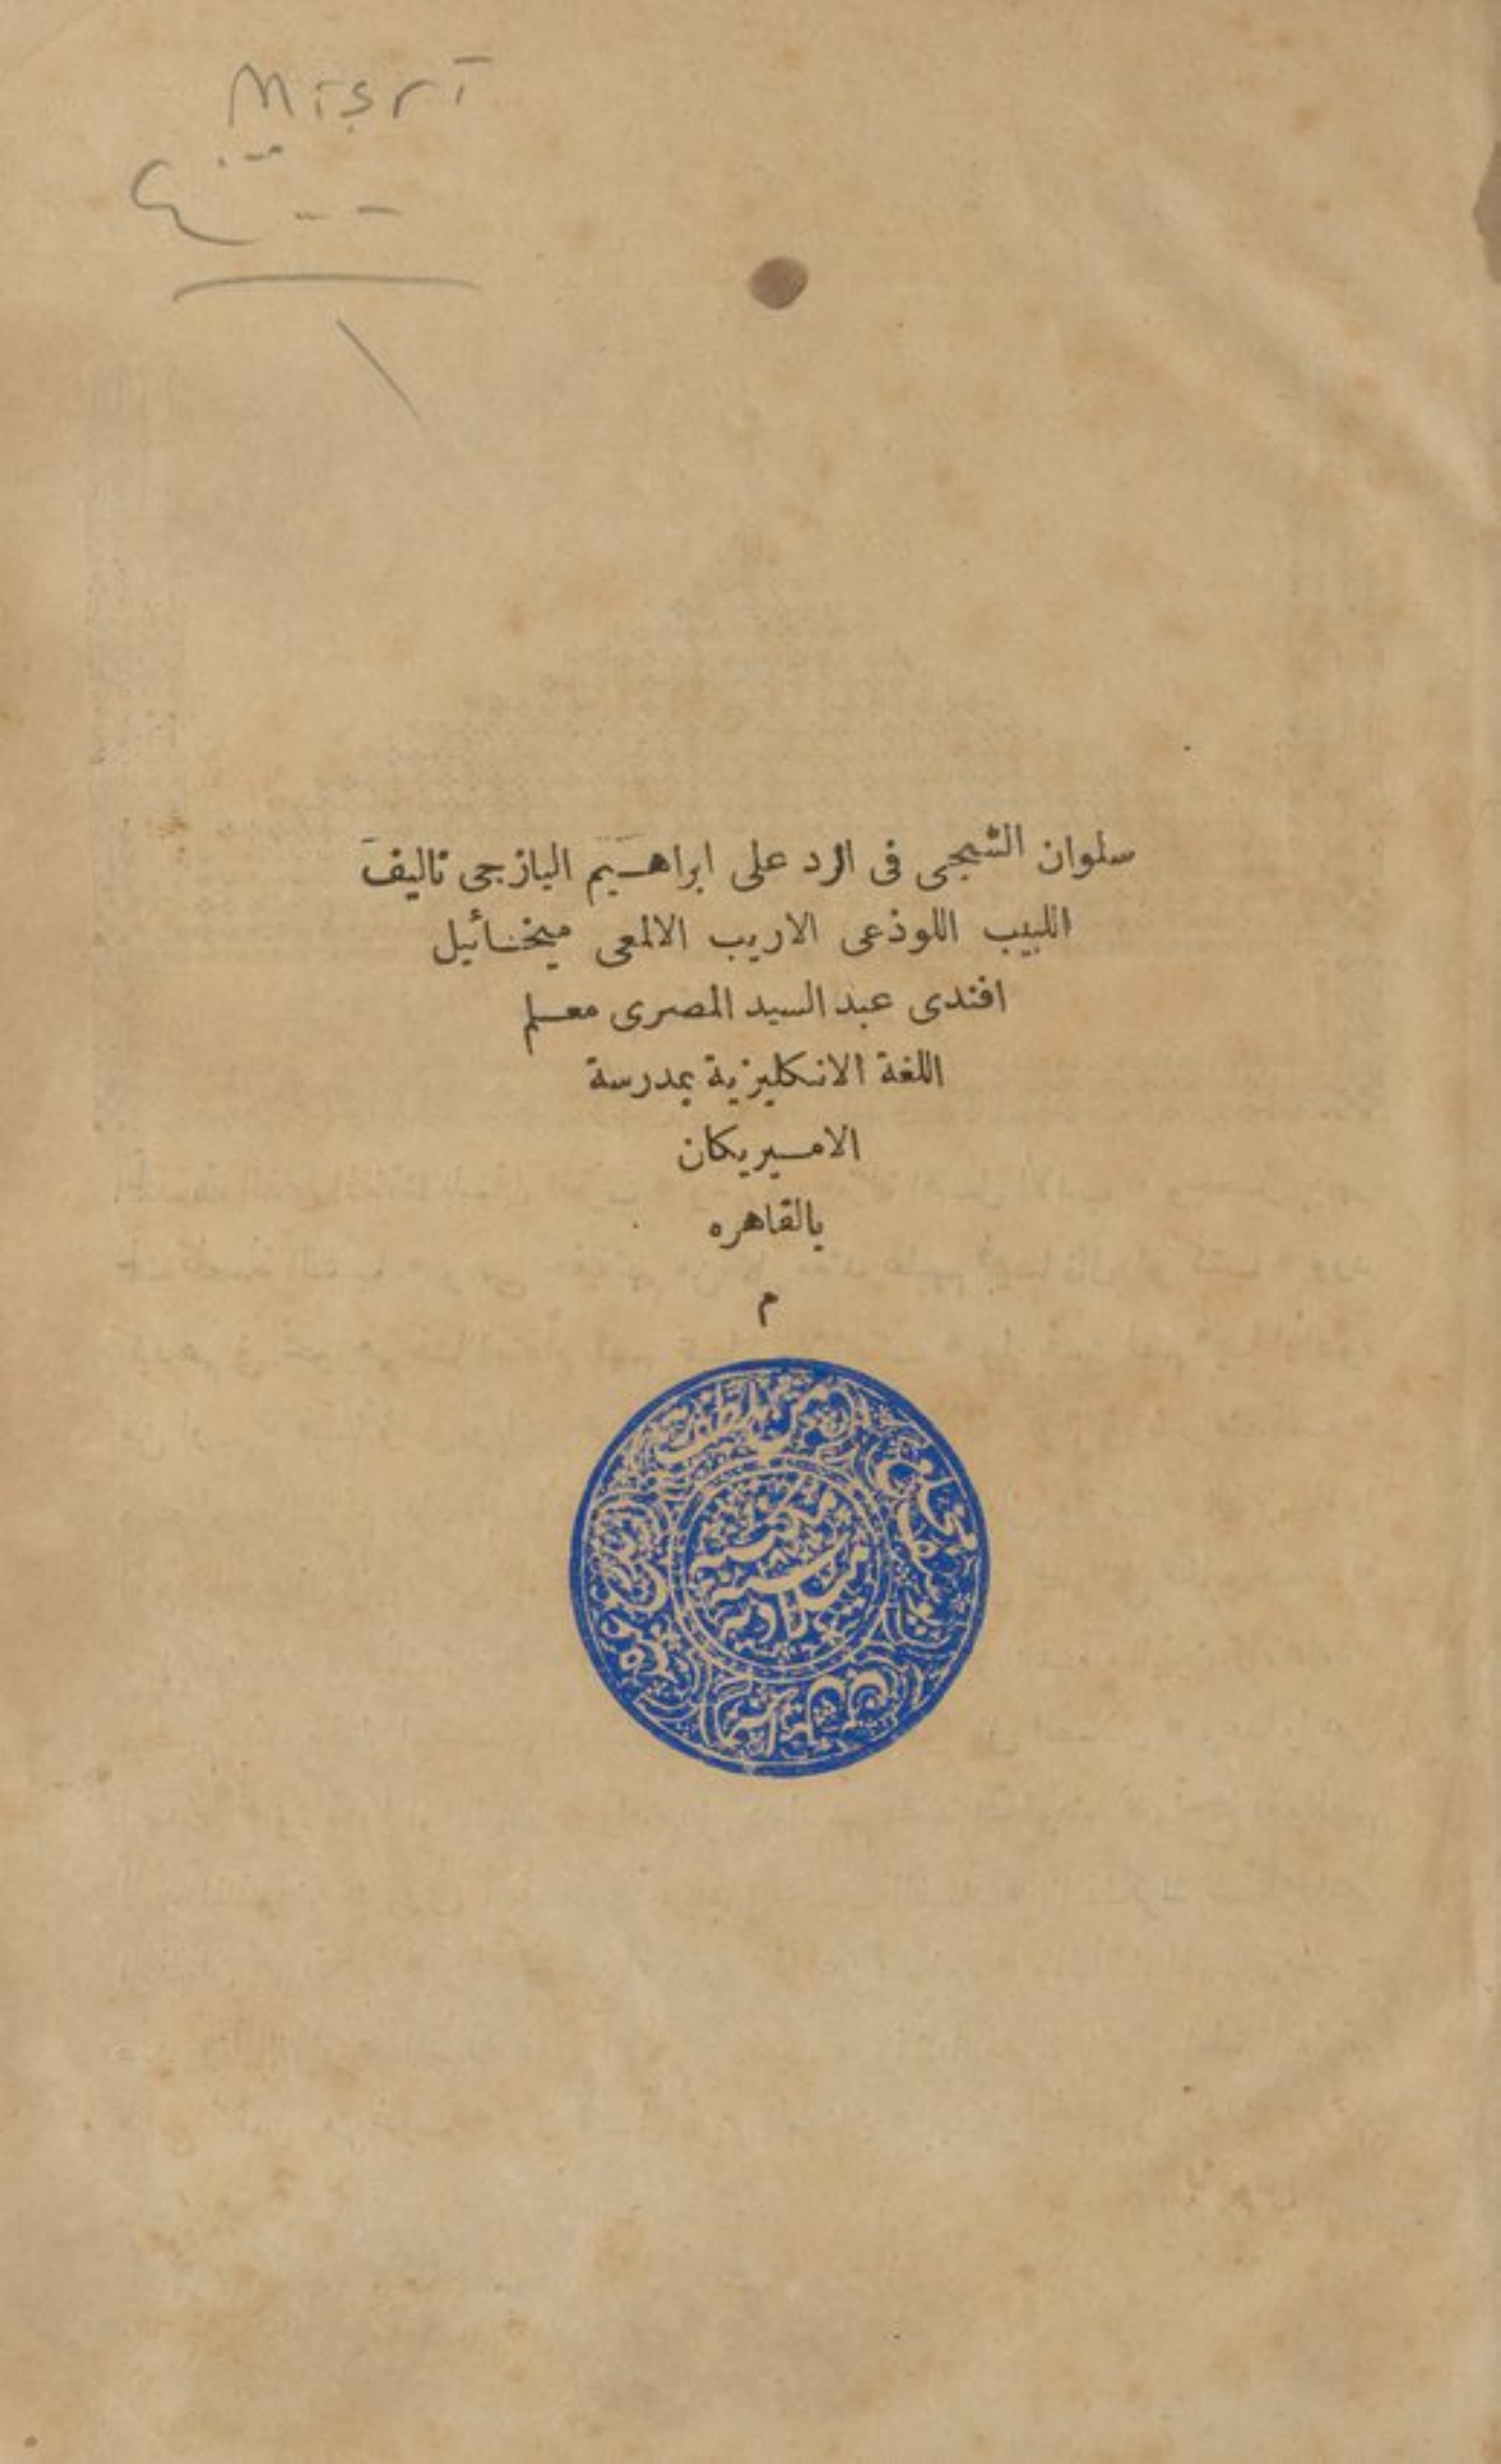 Mīṣrī
سلوان الشجى فى الرد على ابراهيم اليازجى تاليف
اللبيب اللوذعى الاريب الالمعى ميخائيل
افندى عبد السيد المصرى معلم
اللغة الانكليزية بمدرسة
الاميريكان
بالقاهره
م
مكتبة